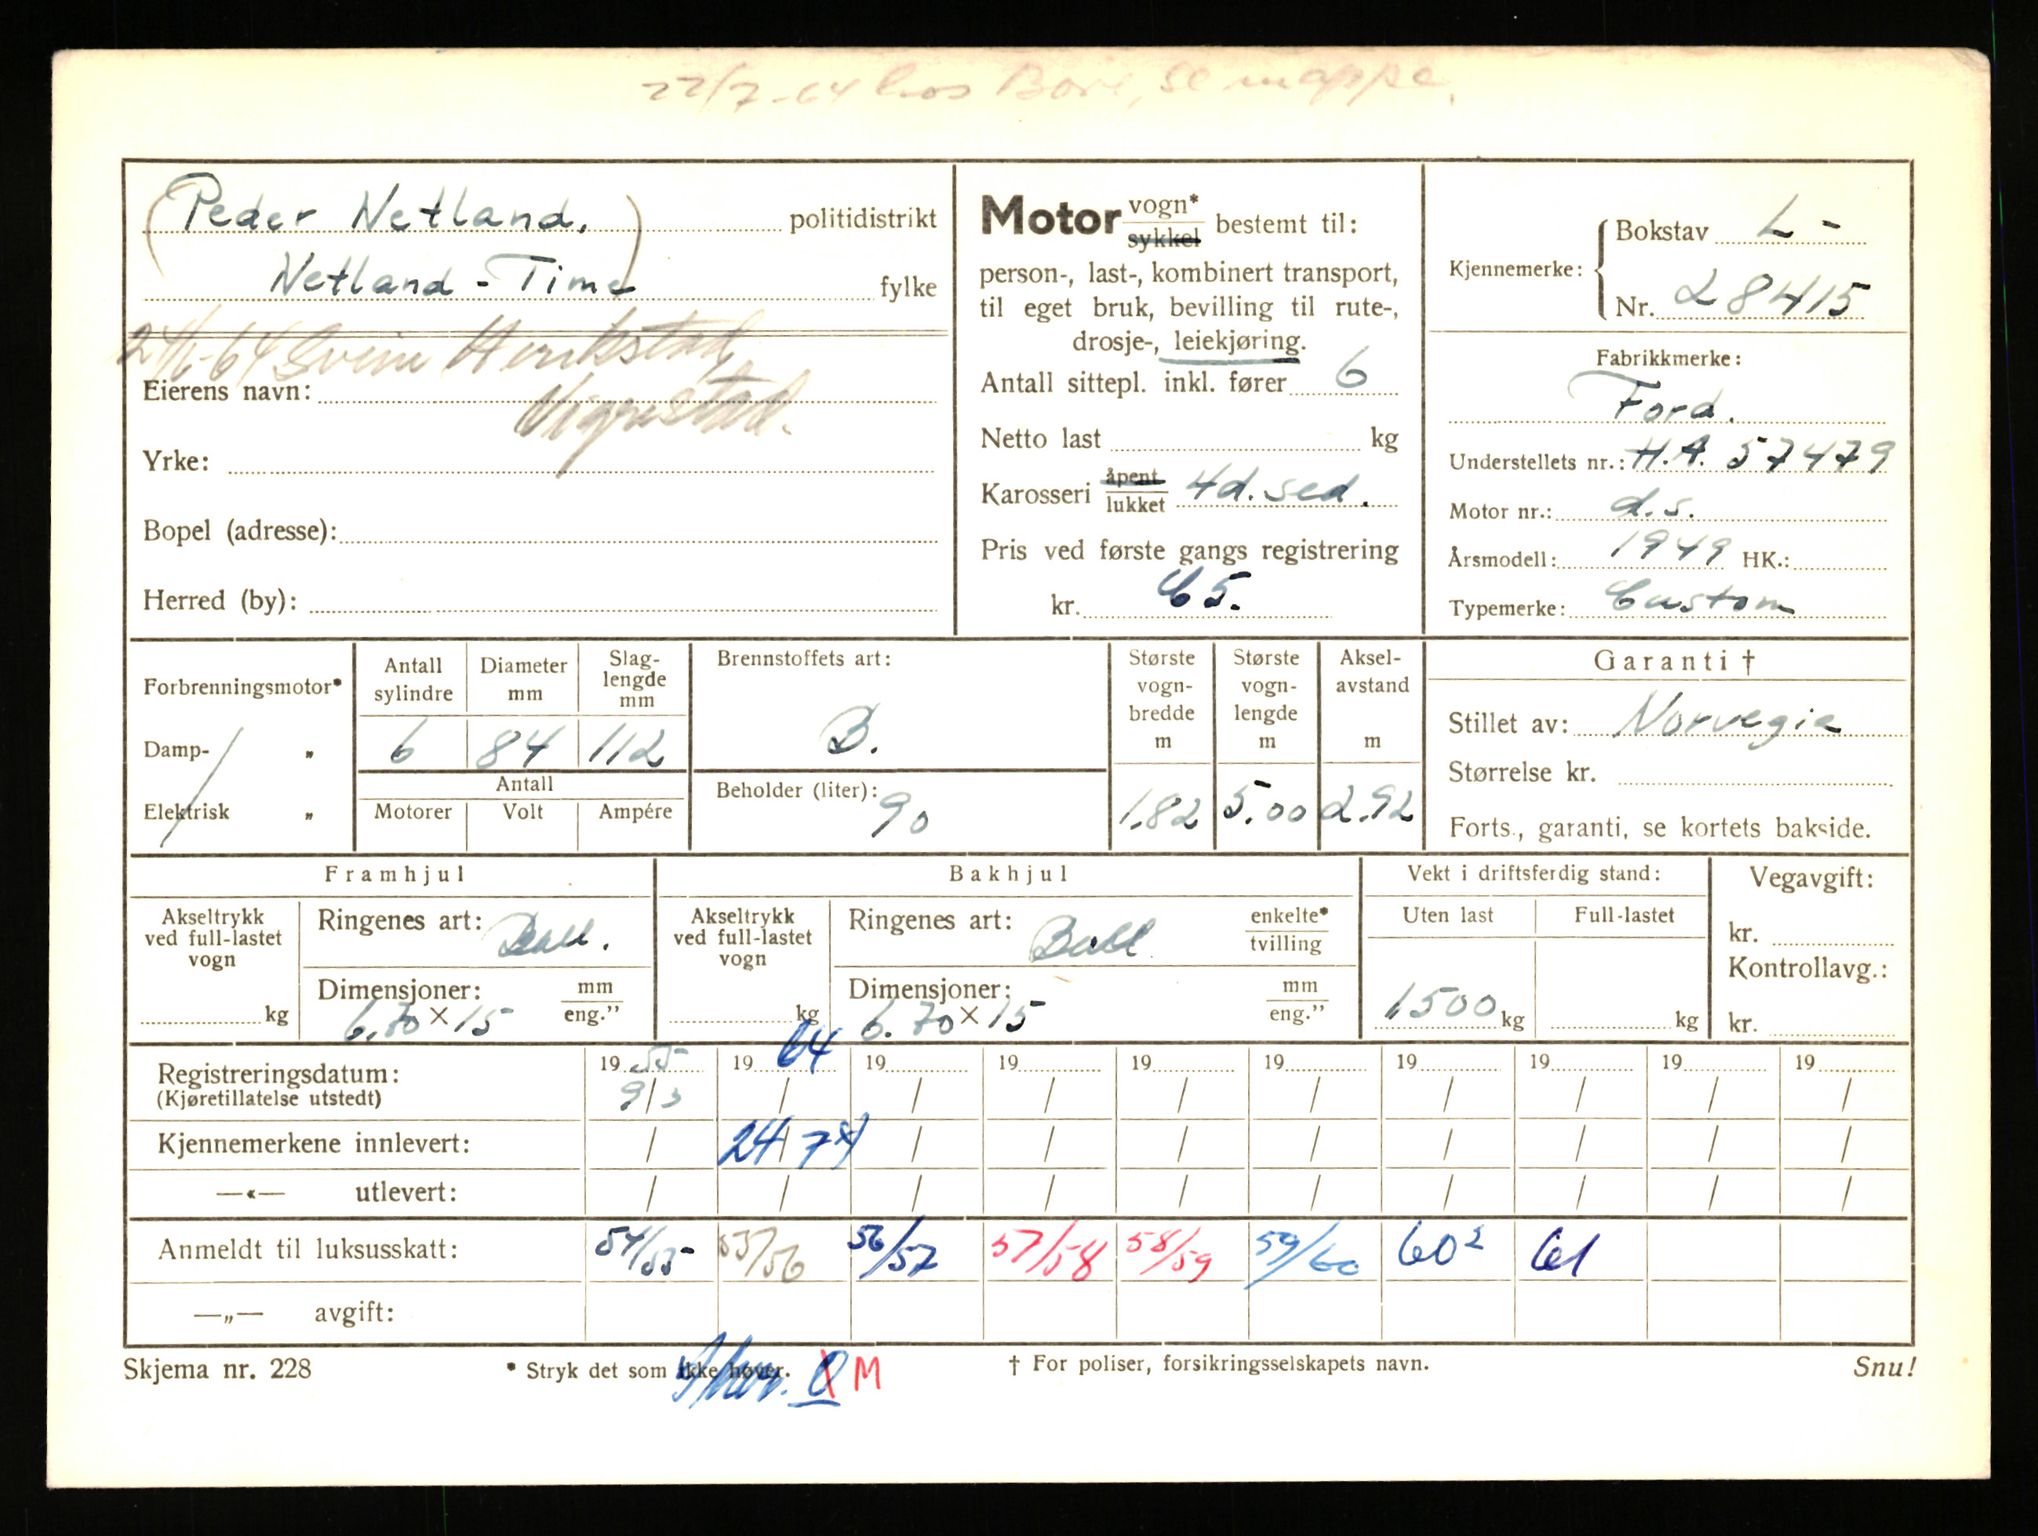 22/7-64 hos Bore, se mappe.
(Peder Netland,) politidistrikt
Netland - Time fylke
24/6-64 Svein Henrikstad,
Eierens navn:
Vigrestad.
Yrke:
Bopel (adresse):
Herred (by):
Motor vogn* sykkel bestemt til:
person-, last-, kombinert transport,
til eget bruk, bevilling til rute-,
drosje-, leiekjøring.
Antall sittepl. inkl. fører 6
Netto last kg
Karosseri åpent lukket 4d. sed.
Pris ved første gangs registrering
kr. C 5.
Kjennemerke: Bokstav L -
Nr. 28415
Fabrikkmerke:
Ford.
Understellets nr.: H.A. 57479
Motor nr.: d.s.
Årsmodell: 1949 HK.:
Typemerke: Custom
Forbrenningsmotor*
Damp- „
Elektrisk „
Antall sylindre
6
Diameter mm
84
Slag-lengde mm
112
Antall
Motorer Volt Ampére
Brennstoffets art:
B.
Beholder (liter):
90
Største vogn-bredde m
1.82
Største vogn-lengde m
5.00
Aksel-avstand m
2.92
Garanti †
Stillet av: Norvegia
Størrelse kr.
Forts., garanti, se kortets bakside.
Framhjul
Akseltrykk ved full-lastet vogn
kg
Ringenes art: Ball.
Dimensjoner: mm eng.”
6.70 × 15
Bakhjul
Akseltrykk ved full-lastet vogn
kg
Ringenes art: Ball enkelte* tvilling
Dimensjoner: mm eng.”
6.70 × 15
Vekt i driftsferdig stand:
Uten last Full-lastet
1500 kg kg
Vegavgift:
kr.
Kontrollavg.:
kr.
Registreringsdatum: 19 55 19 64 19 19 19 19 19 19 19 19
(Kjøretillatelse utstedt) 9/3 / / / / / / / / /
Kjennemerkene innlevert: / 24/7 x) / / / / / / / /
—«— utlevert: / / / / / / / / / /
Anmeldt til luksusskatt: 54/55 55/56 56/57 57/58 58/59 59/60 60² 61
—„— avgift:
Skjema nr. 228
* Stryk det som ikke høver.
M
† For poliser, forsikringsselskapets navn.
Snu!